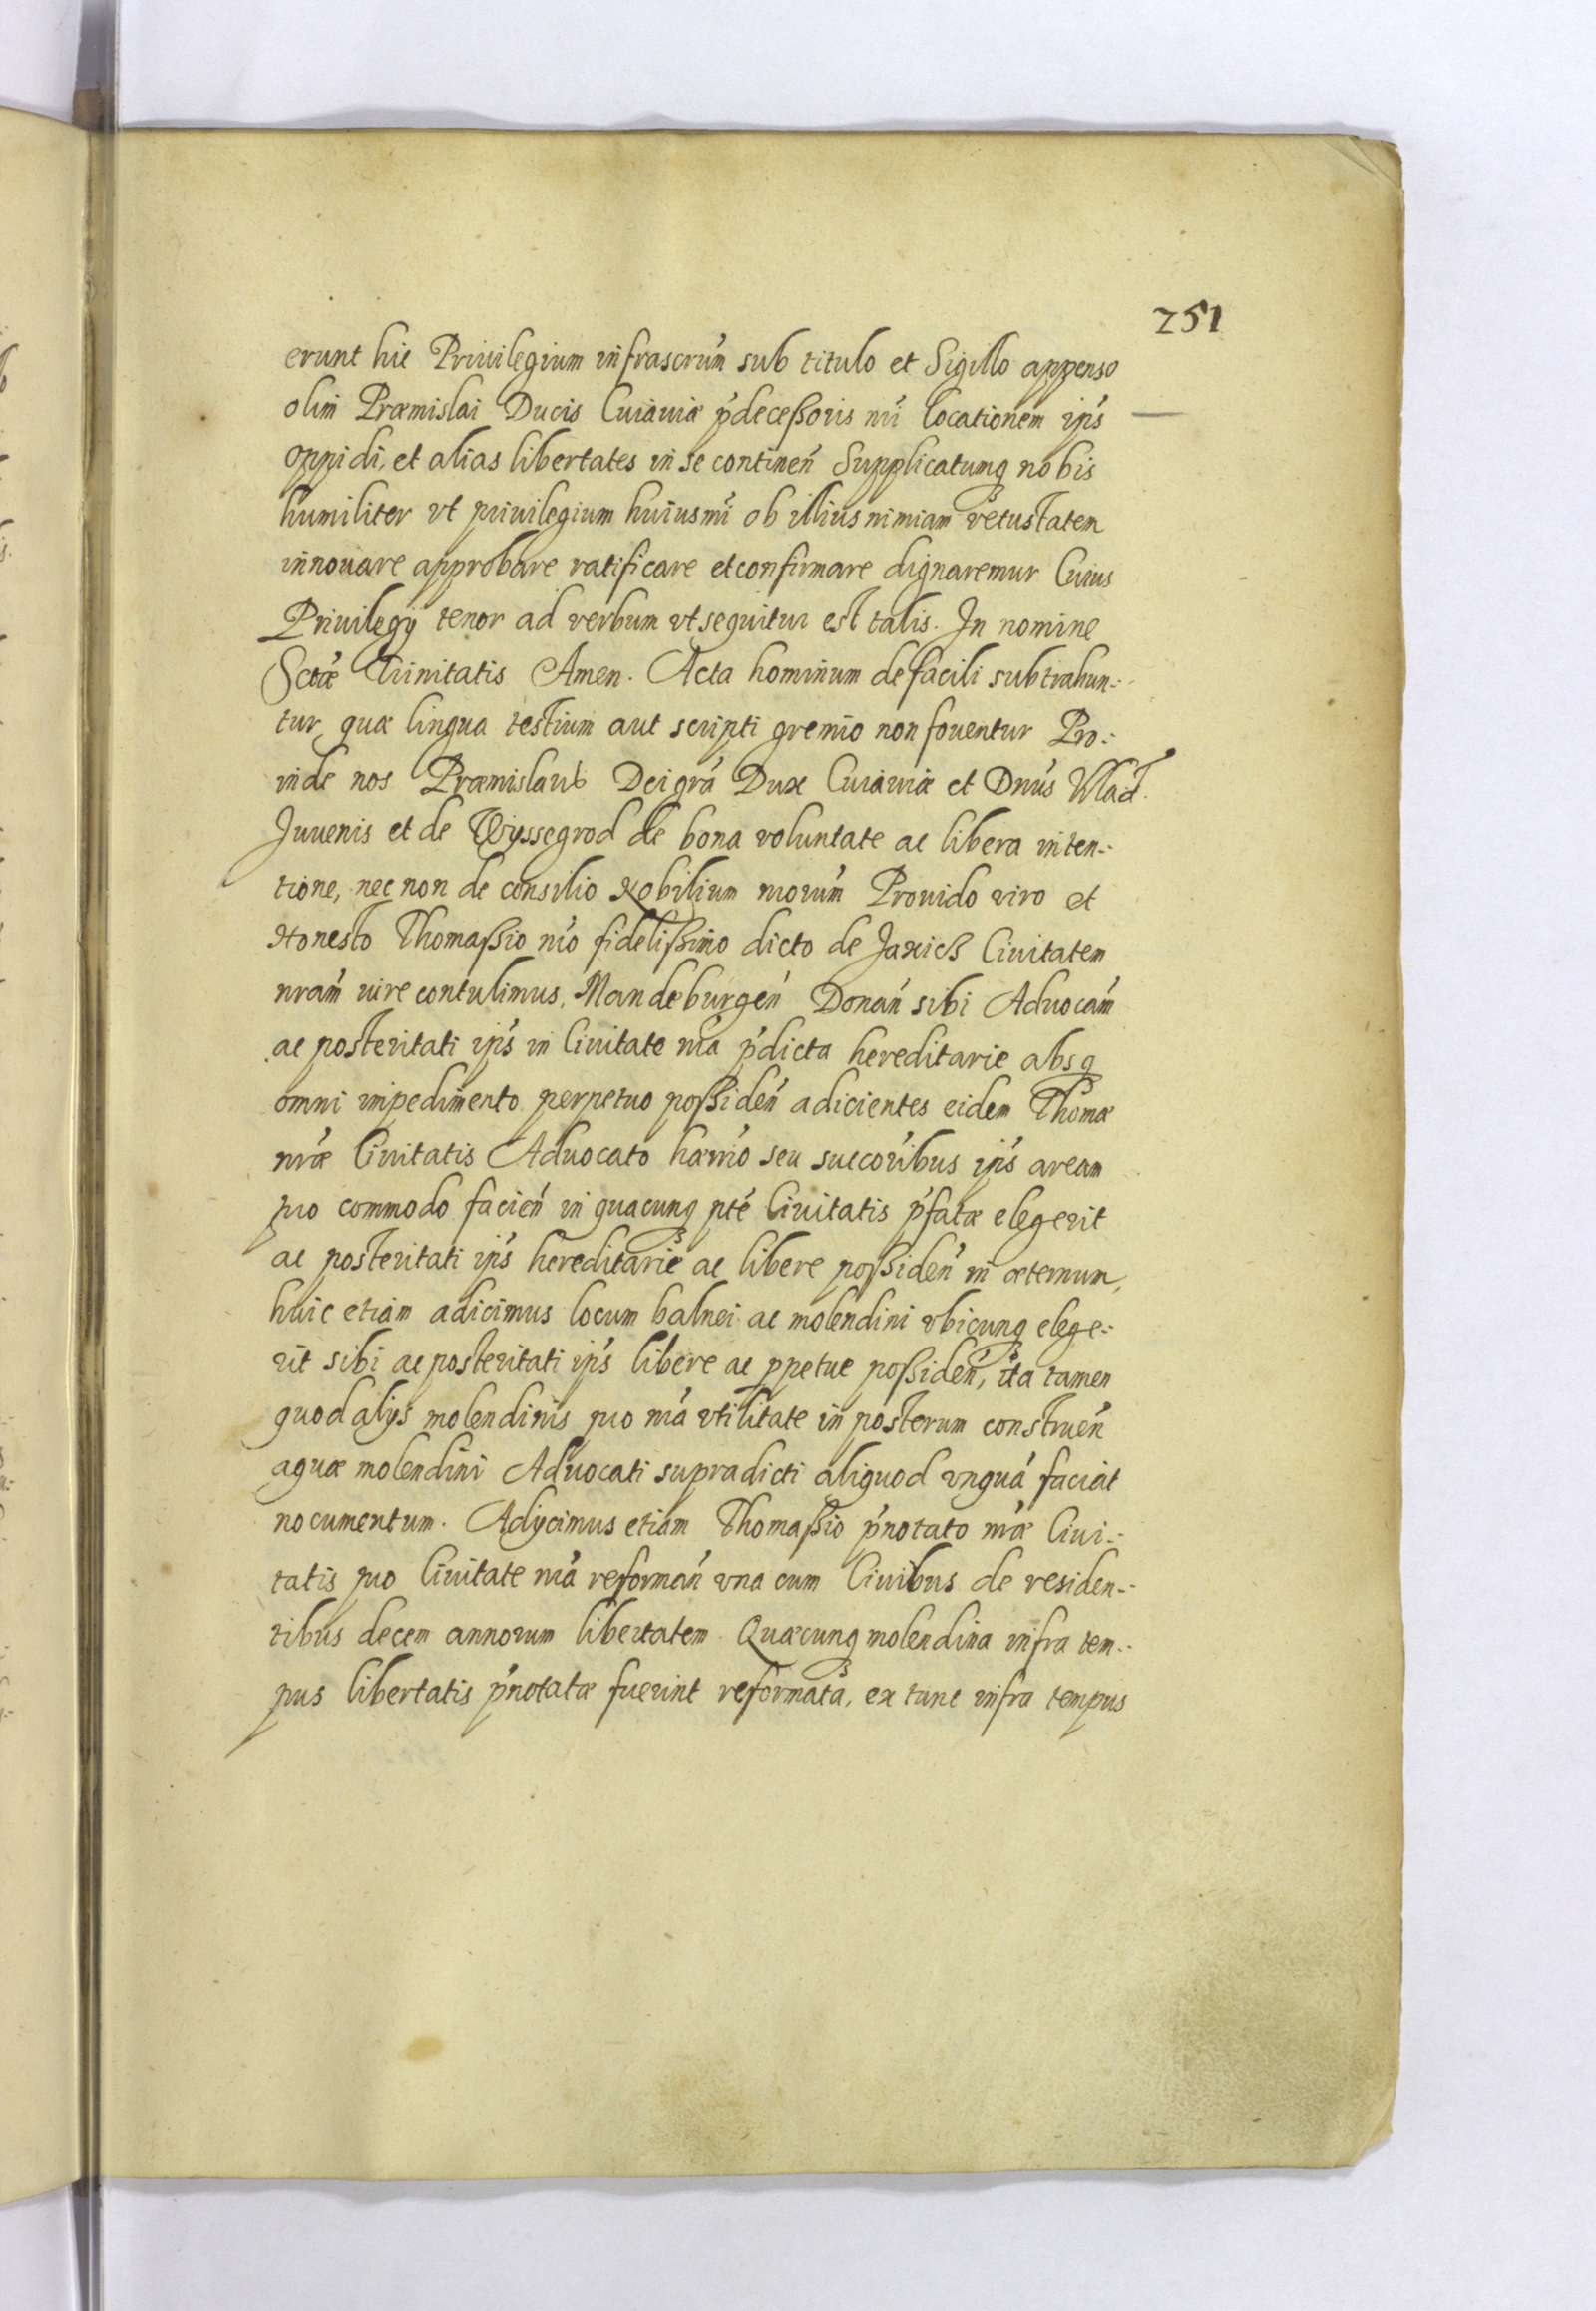 251
erunt hic Priuilegium infrascrúm sub titulo et Sigillo appenso
olim Præmislai Ducis Cuiauiæ ṕdecessoris nrí locationem ipś
oppidi, et alias libertates in se continén Supplicatumq nobis
humiliter vt priuilegium huiusmí ob illius nimiam vetustatem
innouare approbare ratificare et confirmare dignaremur Cuius
Priuilegij tenor ad verbum vt sequitur est talis. In nomine
Sctǽ Trinitatis Amen. Acta hominum de facili subtrahun-:
tur, quæ lingua testium aut scripti gremio non fouentur Pro-:
inde nos Præmislaus Dei grá Dux Cuiauiæ et Dnús Wlad.
Juuenis et de Wyssegrod de bona voluntate ac libera inten-:
tione, nec non de consilio Nobilium nrorúm Prouido viro et
Honesto Thomassio nró fidelissimo dicto de Jaxich Ciuitatem
nrám iure contulimus, Mandeburgeń Donań sibi Aduocám
ac posteritati ipś in Ciuitate nrá ṕdicta hereditarie absq
omni impedimento perpetuo possideń adicientes eidem Thomæ
nrǽ Ciuitatis Aduocato hærrió seu succoríbus ipś aream
pro commodo facień in quacunq pté Ciuitatis ṕfatæ elegerit
ac posteritati ipś hereditarie ac libere possideń in æternum,
huic etiam adicimus locum balnei ac molendini vbicunq elege-:
rit sibi ac posteritati ipś libere ac ppetue possideń, ita tamen
quod alijs molendinis pro nrá vtilitate in posterum construeń
aquæ molendini Aduocati supradicti aliquod vnquá faciat
nocumentum. Adijcimus etiam Thomassio ṕnotato nrǽ Ciui-:
tatis pro Ciuitate nrá reformań vna cum Ciuibus de residen-:
tibus decem annorum libertatem. Quæcunq molendina infra tem-:
pus libertatis ṕnotatæ fuerint reformata, ex tunc infra tempus